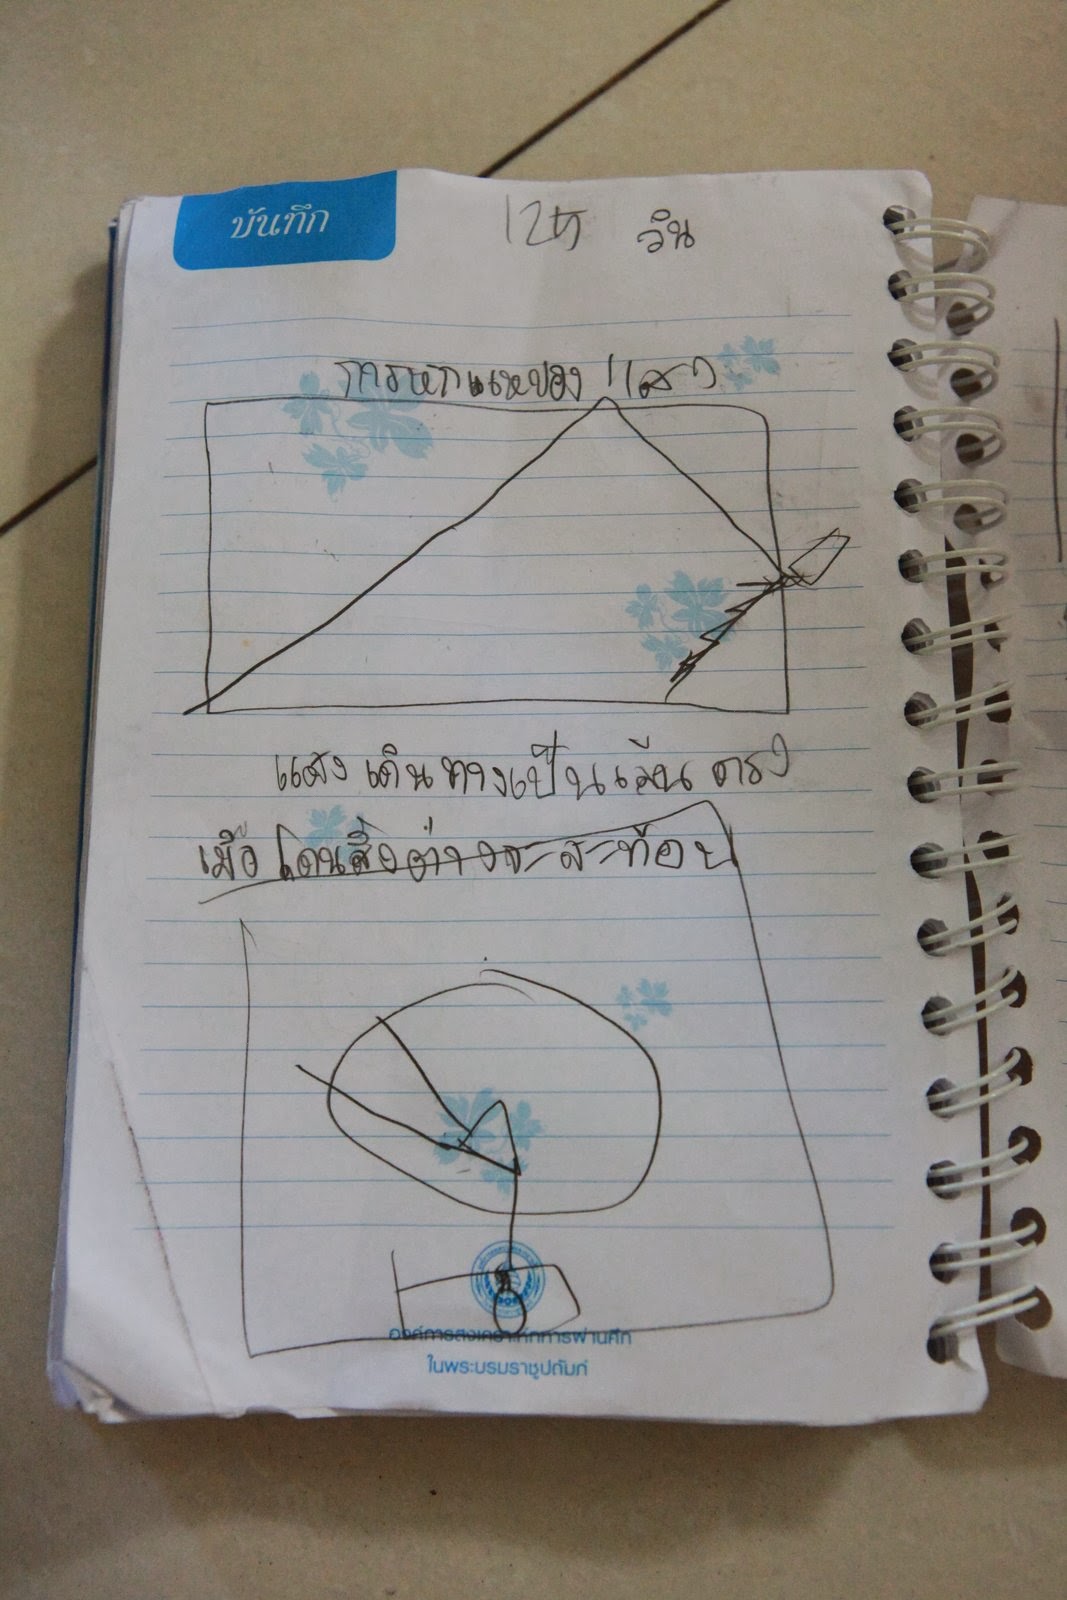 บันทึก
วีน
การหักแหของแสง
แสงเดินทางเป็นเส้นตรง
เมื่อโดนสิ่งต่างจะสะท้อน
องค์การสงเคราะห์ทหารผ่านศึก
ในพระบรมราชูปถัมภ์